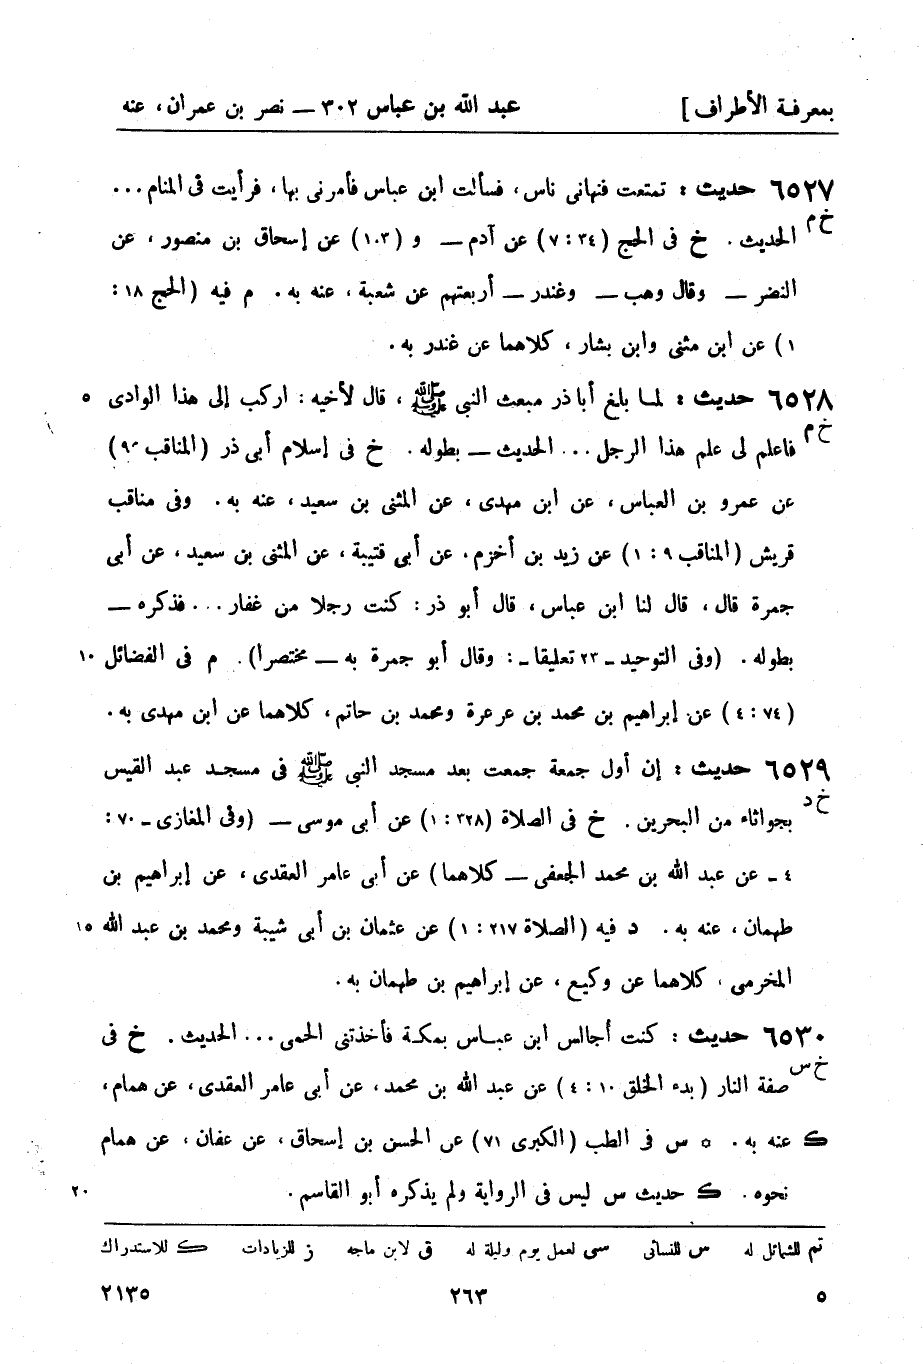 بمعرفة الأطراف ] عبد الله بن عباس ٣٠٢ ــ نصر بن عمران، عنه
٦٥٢٧ حديث : تمتعت فنهانى ناس، فسألت ابن عباس فأمرنى بها، فرأيت فى المنام...
خ م الحديث. خ فى الحج (٣٤ : ٧) عن آدم ــ و (١٠٣) عن إسحاق بن منصور، عن
النضر ــ وقال وهب ــ وغندر ــ أربعتهم عن شعبة، عنه به. م فيه (الحج ١٨ :
١) عن ابن مثنى وابن بشار، كلاهما عن غندر به.
٦٥٢٨ حديث : لمـا بلغ أبا ذر مبعث النبي ﷺ، قال لأخيه : اركب إلى هذا الوادى ٥
خ م فاعلم لى علم هذا الرجل... الحديث ــ بطوله. خ فى إسلام أبى ذر (المناقب ٩٠)
عن عمرو بن العباس، عن ابن مهدى، عن المثنى بن سعيد، عنه به. وفى مناقب
قريش (المناقب ٩ : ١) عن زيد بن أخزم، عن أبى قتيبة، عن المثنى بن سعيد، عن أبى
جمرة قال، قال لنا ابن عباس، قال أبو ذر : كنت رجلا من غفار... فذكره ــ
بطوله. (وفى التوحيد ـ ٢٣ تعليقا ـ : وقال أبو جمرة به ــ مختصرا). م فى الفضائل ١٠
(٧٤ : ٤) عن إبراهيم بن محمد بن عرعرة ومحمد بن حاتم، كلاهما عن ابن مهدى به.
٦٥٢٩ حديث : إن أول جمعة جمعت بعد مسجد النبي ﷺ فى مسجد عبد القيس
خ د بجواثاء من البحرين. خ فى الصلاة (٣٢٨ : ١) عن أبى موسى ــ (وفى المغازى ـ ٧٠ :
٤ ـ عن عبد الله بن محمد الجعفى ــ كلاهما) عن أبى عامر العقدى، عن إبراهيم بن
طهمان، عنه به. د فيه (الصلاة ٢١٧ : ١) عن عثمان بن أبى شيبة ومحمد بن عبد الله ١٥
المخرمى، كلاهما عن وكيع، عن إبراهيم بن طهمان به.
٦٥٣٠ حديث : كنت أجالس ابن عبـاس بمكة فأخذتنى الحمى... الحديث. خ فى
خ س صفة النار (بدء الخلق ١٠ : ٤) عن عبد الله بن محمد، عن أبى عامر العقدى، عن همام،
ك عنه به. ٥ س فى الطب (الكبرى ٧١) عن الحسن بن إسحاق، عن عفان، عن همام
نحوه. ك حديث س ليس فى الرواية ولم يذكره أبو القاسم. ٢٠
تم للشمائل له س للنسائى سى لعمل يوم وليلة له ق لابن ماجه ز للزيادات ك للاستدراك
٥ ٢٦٣ ٢١٣٥